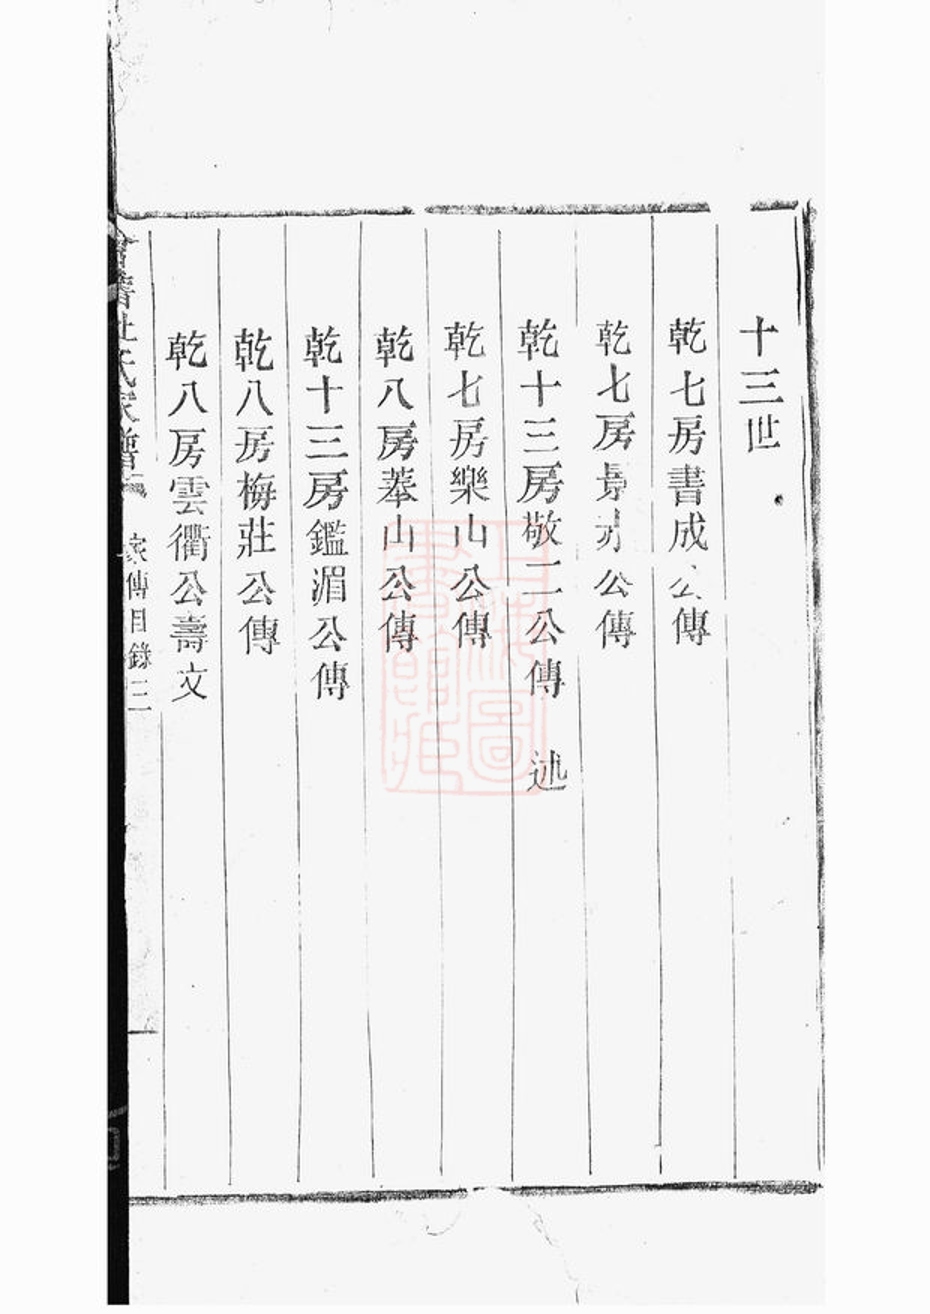 十三世
乾七房書成公傳
乾七房景公傳
乾十三房敬二公傳　述
乾七房樂山公傳
乾八房菶山公傳
乾十三房鑑湄公傳
乾八房梅莊公傳
乾八房雲衢公壽文
杜氏家譜　家傳目錄　三
上海圖書館藏